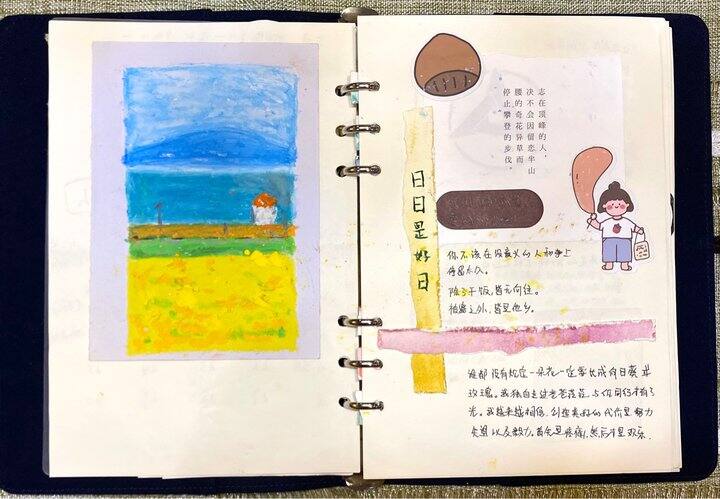 志在顶峰的人，
决不会因留恋半山
腰的奇花异草而
停止攀登的步伐。
日日是好日
你不该在没意义的人和事上
停留太久。
除了干饭，皆无向往。
柏露之外，皆是他乡。
没有规定一朵花一定要长成向日葵或
玫瑰。我独自走过苍苍茫茫，与你同行才有了
光。我越来越相信，创造美好的代价是努力
失望以及毅力。首先是疼痛，然后才是欢乐。